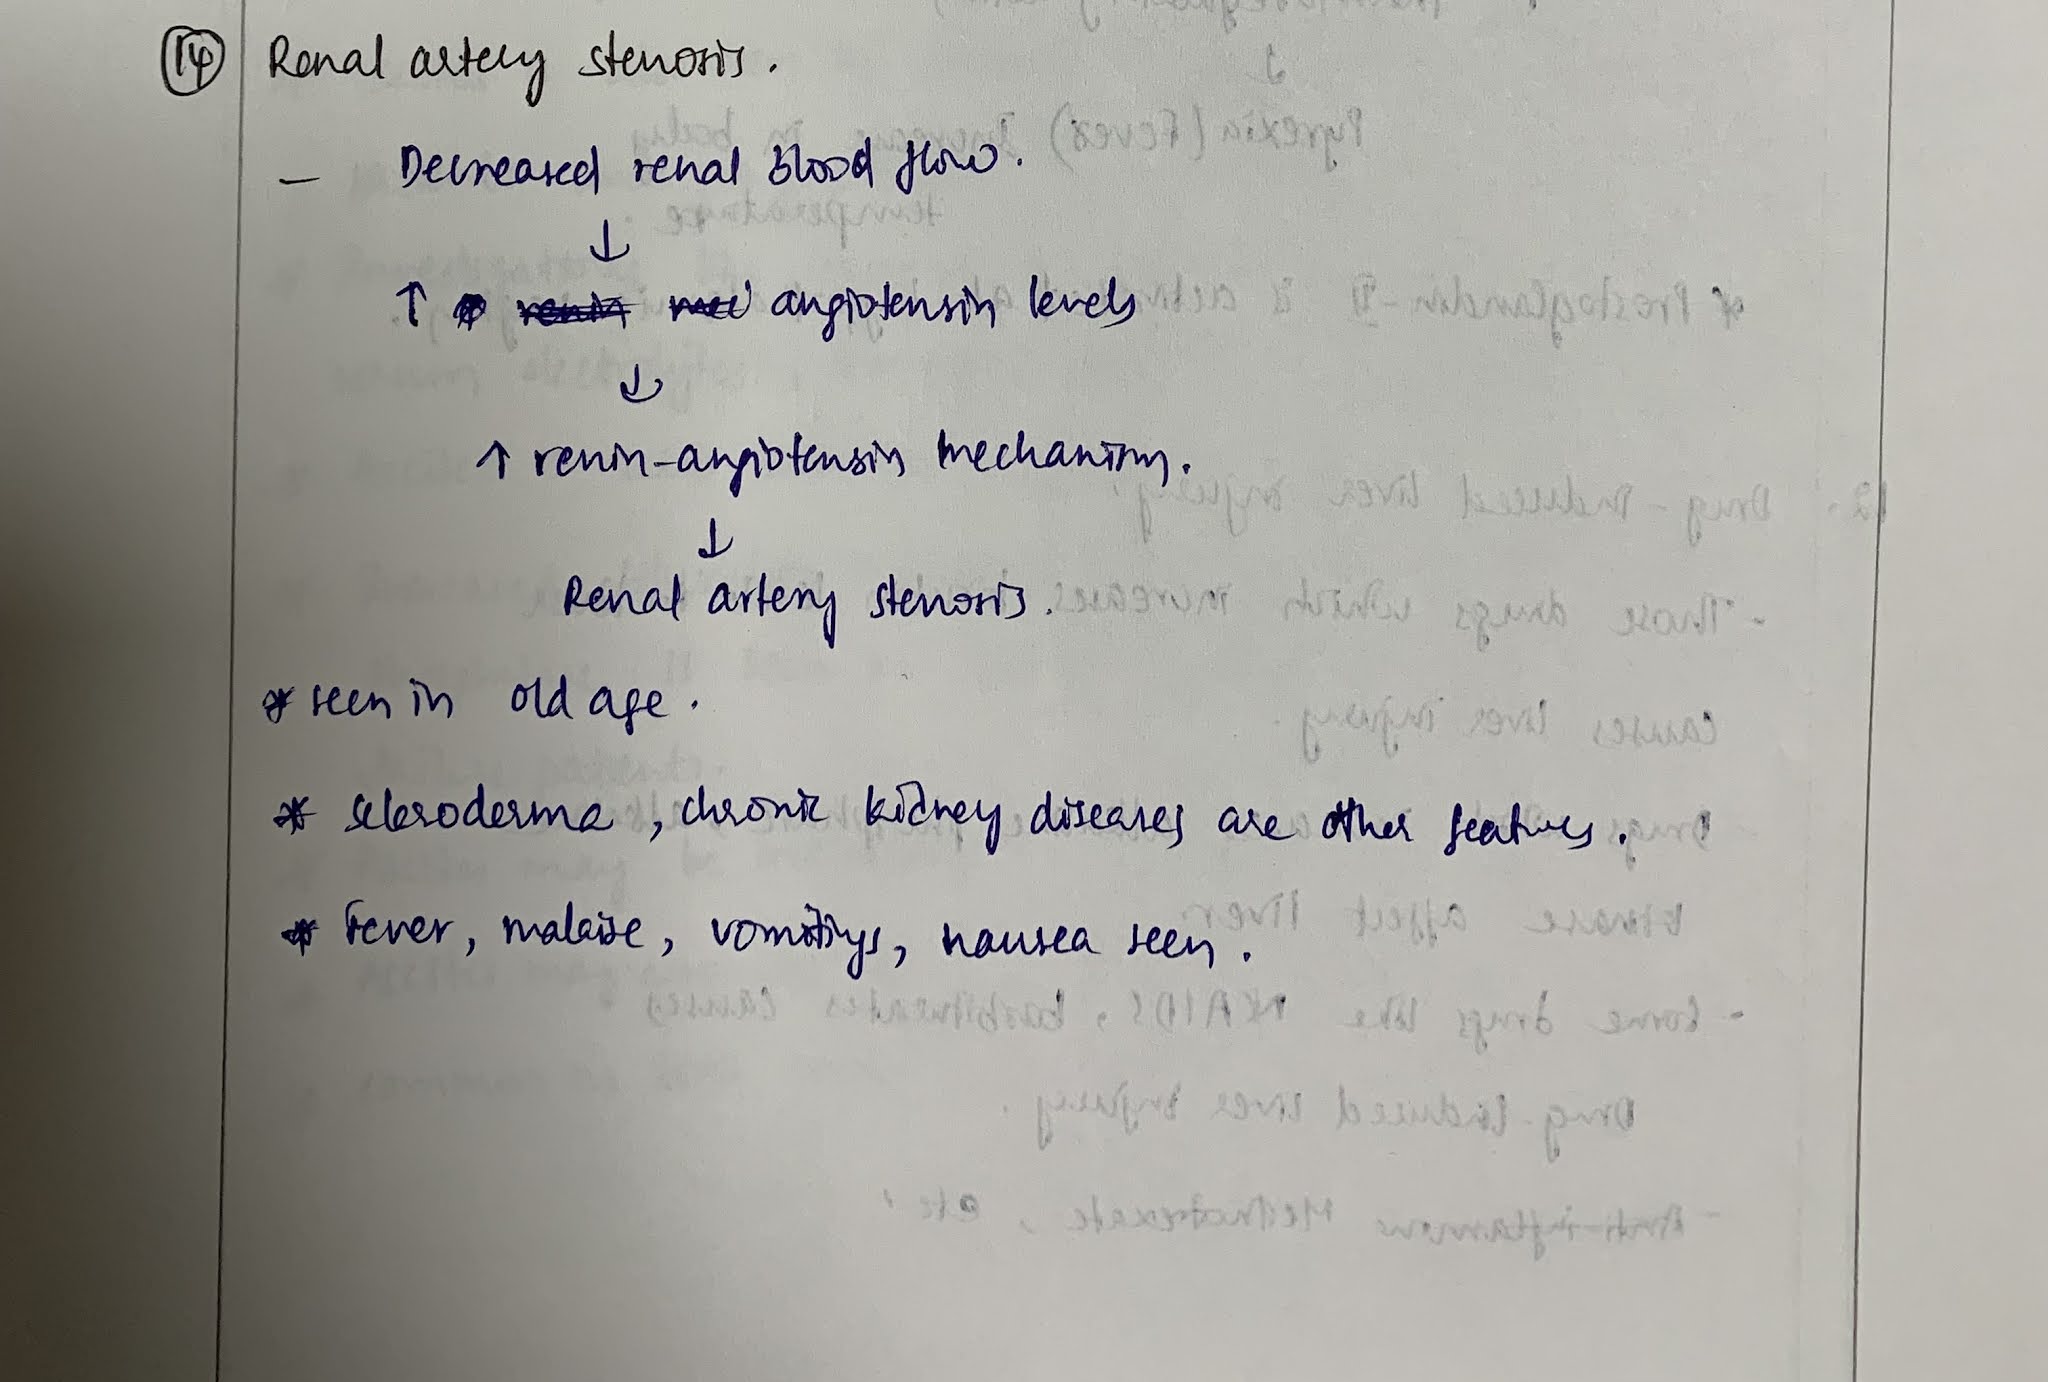 14 Renal artery stenosis.
– Decreased renal blood flow.
↓
↑ renin angiotensin levels
↓
↑ renin-angiotensin mechanism.
↓
Renal artery stenosis.
* seen in old age.
* scleroderma, chronic kidney diseases are other features.
* Fever, malaise, vomitings, nausea seen.